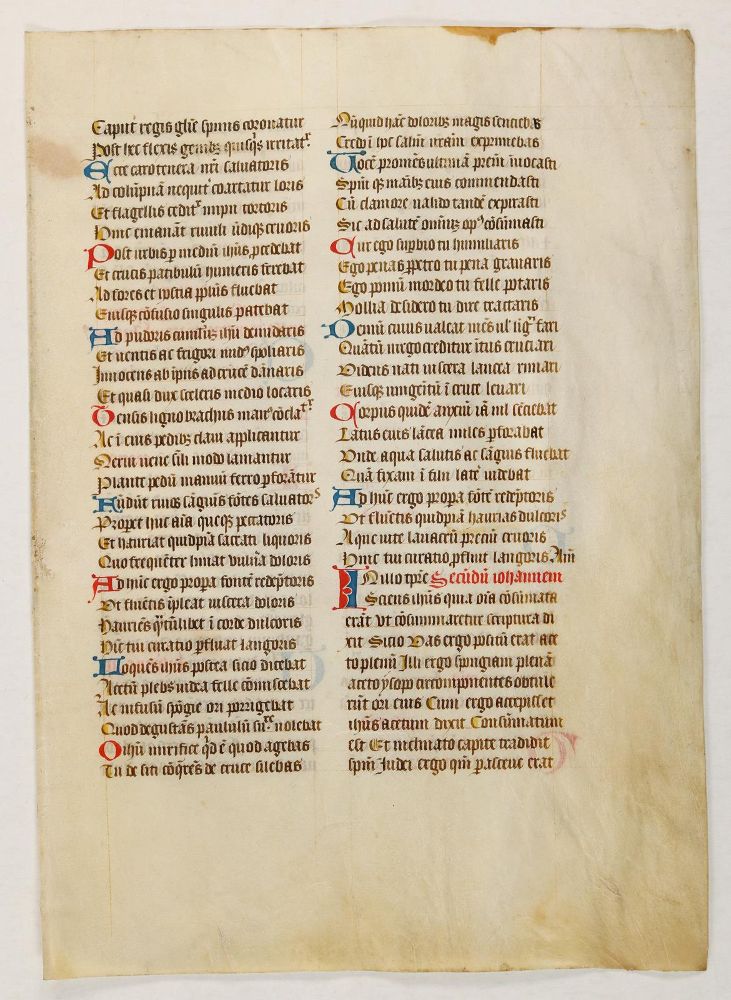 Caput regis gl̄ie spinis coronatur
Post hec flexis genibꝫ quisqꝫ irritatᷣ
Ecce caro tenera nr̄i saluatoris
Ad colūpnā nequit̓ coartatur loris
Et flagellis ceditᷣ impii tortoris
Hinc emanāt riuuli ūdiqꝫ cruoris
Post urbis ꝑ mediū ihūs ꝓcedebat
Et crucis patibulū humeris ferebat
Ad fores et hostia pplūs fluebat
Eiusqꝫ cōfusio singulis patebat
Ad pudoris cumulū ihū denudaris
Et uentis ac frigori nudꝰ spoliaris
Innocens ab īpiis ad crucē dānaris
Et quasi dux sceleris medio locaris
Tensis ligno brachiis manꝰ
Ac ī eius pedibꝫ claui applicantur
Nerui uene sīli modo laniantur
Plante pedū manuū ferro ꝑforātur
riuos sāguīs fōtes saluatorˢ
Propet huc aīa queqꝫ peccatoris
Et hauriat quidpiā sacrati liquoris
Quo frequēter liniat vulnīa doloris
Ad hūc ergo propa fontē redēptoris
Vt fluentis īpleat viscera doloris
ī corde dulcoris
Hīc tui curatio ꝓfluat langoris
ihūs postea sicio dicebat
Acetū plebs iudea felle cōmiscebat
Ac infusū spōgie ori porrigebat
Quod degustās paululū nolebat
O ihū mirifice qͥd ē quod agebas
Tu de siti de cruce silebas
Nūquid hāc doloribꝫ magis senciebas
Credo ī ip̄e salutē nrām exprimebas
Vocē promēs ultimā prēm īuocasti
Spm̄ qꝫ manibꝫ eius commendasti
Cū clamore ualido tandē expirasti
Sic ad salutē omniū opꝰ cōsūmasti
Cur ego suꝑbio tu humiliaris
Ego penas ꝑpetro tu pena grauaris
Ego pomū mordeo tu felle potaris
Mollia desidero tu dire tractaris
O cuius ualeat mēs ul̓ līgͣ fari
Quātū uirgo creditur ītus cruciari
Videns nati viscera lancea rimari
Eiusqꝫ unigenitū ī cruce leuari
Corpus quidē anxium iā nil sēciebat
Latus eius lācea miles ꝑforabat
Vnde aqua salutis ac sāguis fluebat
Quā fixam ī filii late videbat
Ad hūc ergo propa fōtē redēptoris
Vt fluētis quidpiā haurias dulcorīˢ
Aque uite lauacrū preciū cruoris
Hinc tui curatio ꝓfluat langoris Am̄
In illo tpr̄e Secūdū iohannem
Sciens ihūs quia oīa cōsūmata
erāt vt cōsummaretur scriptura di
xit Sicio Vas ergo positū erat ace
to plenū Illi ergo spongiam plenā
aceto ysopo circūponentes obtule
rūt ori eius Cum ergo accepisset
ihūs acetum dixit Consūmatum
est Et inclinato capite tradidit
spm̄ Iudei ergo qm̄ parasceue erat